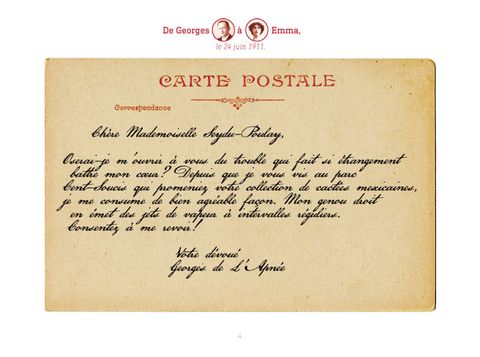 De Georges à Emma,
le 24 juin 1911.
CARTE POSTALE
Correspondance
Chère Mademoiselle Seydu-Pouday,
Oserai-je m'ouvrir à vous du trouble qui fait si étrangement
battre mon cœur? Depuis que je vous vis au parc
Cent-Soucis qui promeniez votre collection de cactées mexicaines,
je me consume de bien agréable façon. Mon genou droit
en émet des jets de vapeur à intervalles réguliers.
Consentez à me revoir!
Votre dévoué
Georges de L'Apnée
4